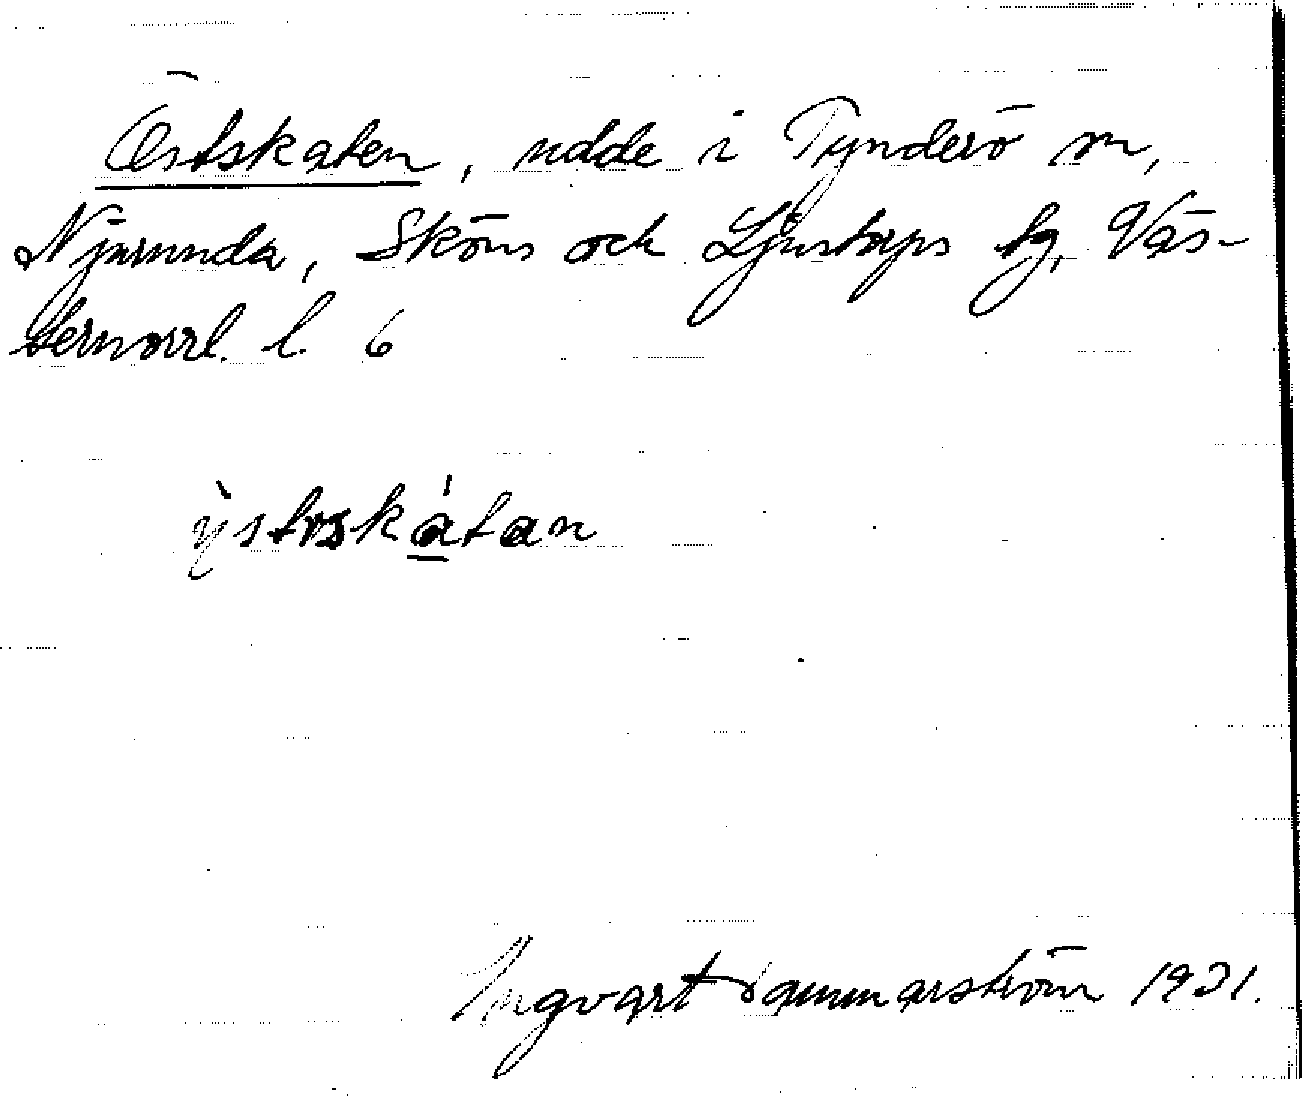 Östskaten, udde i Tynderö sn,
Njurunda, Sköns och Ljustorps tg, Väs-
ternorrl. l. 6
ỳstvskátan
Ingvart Hammarström 1931.